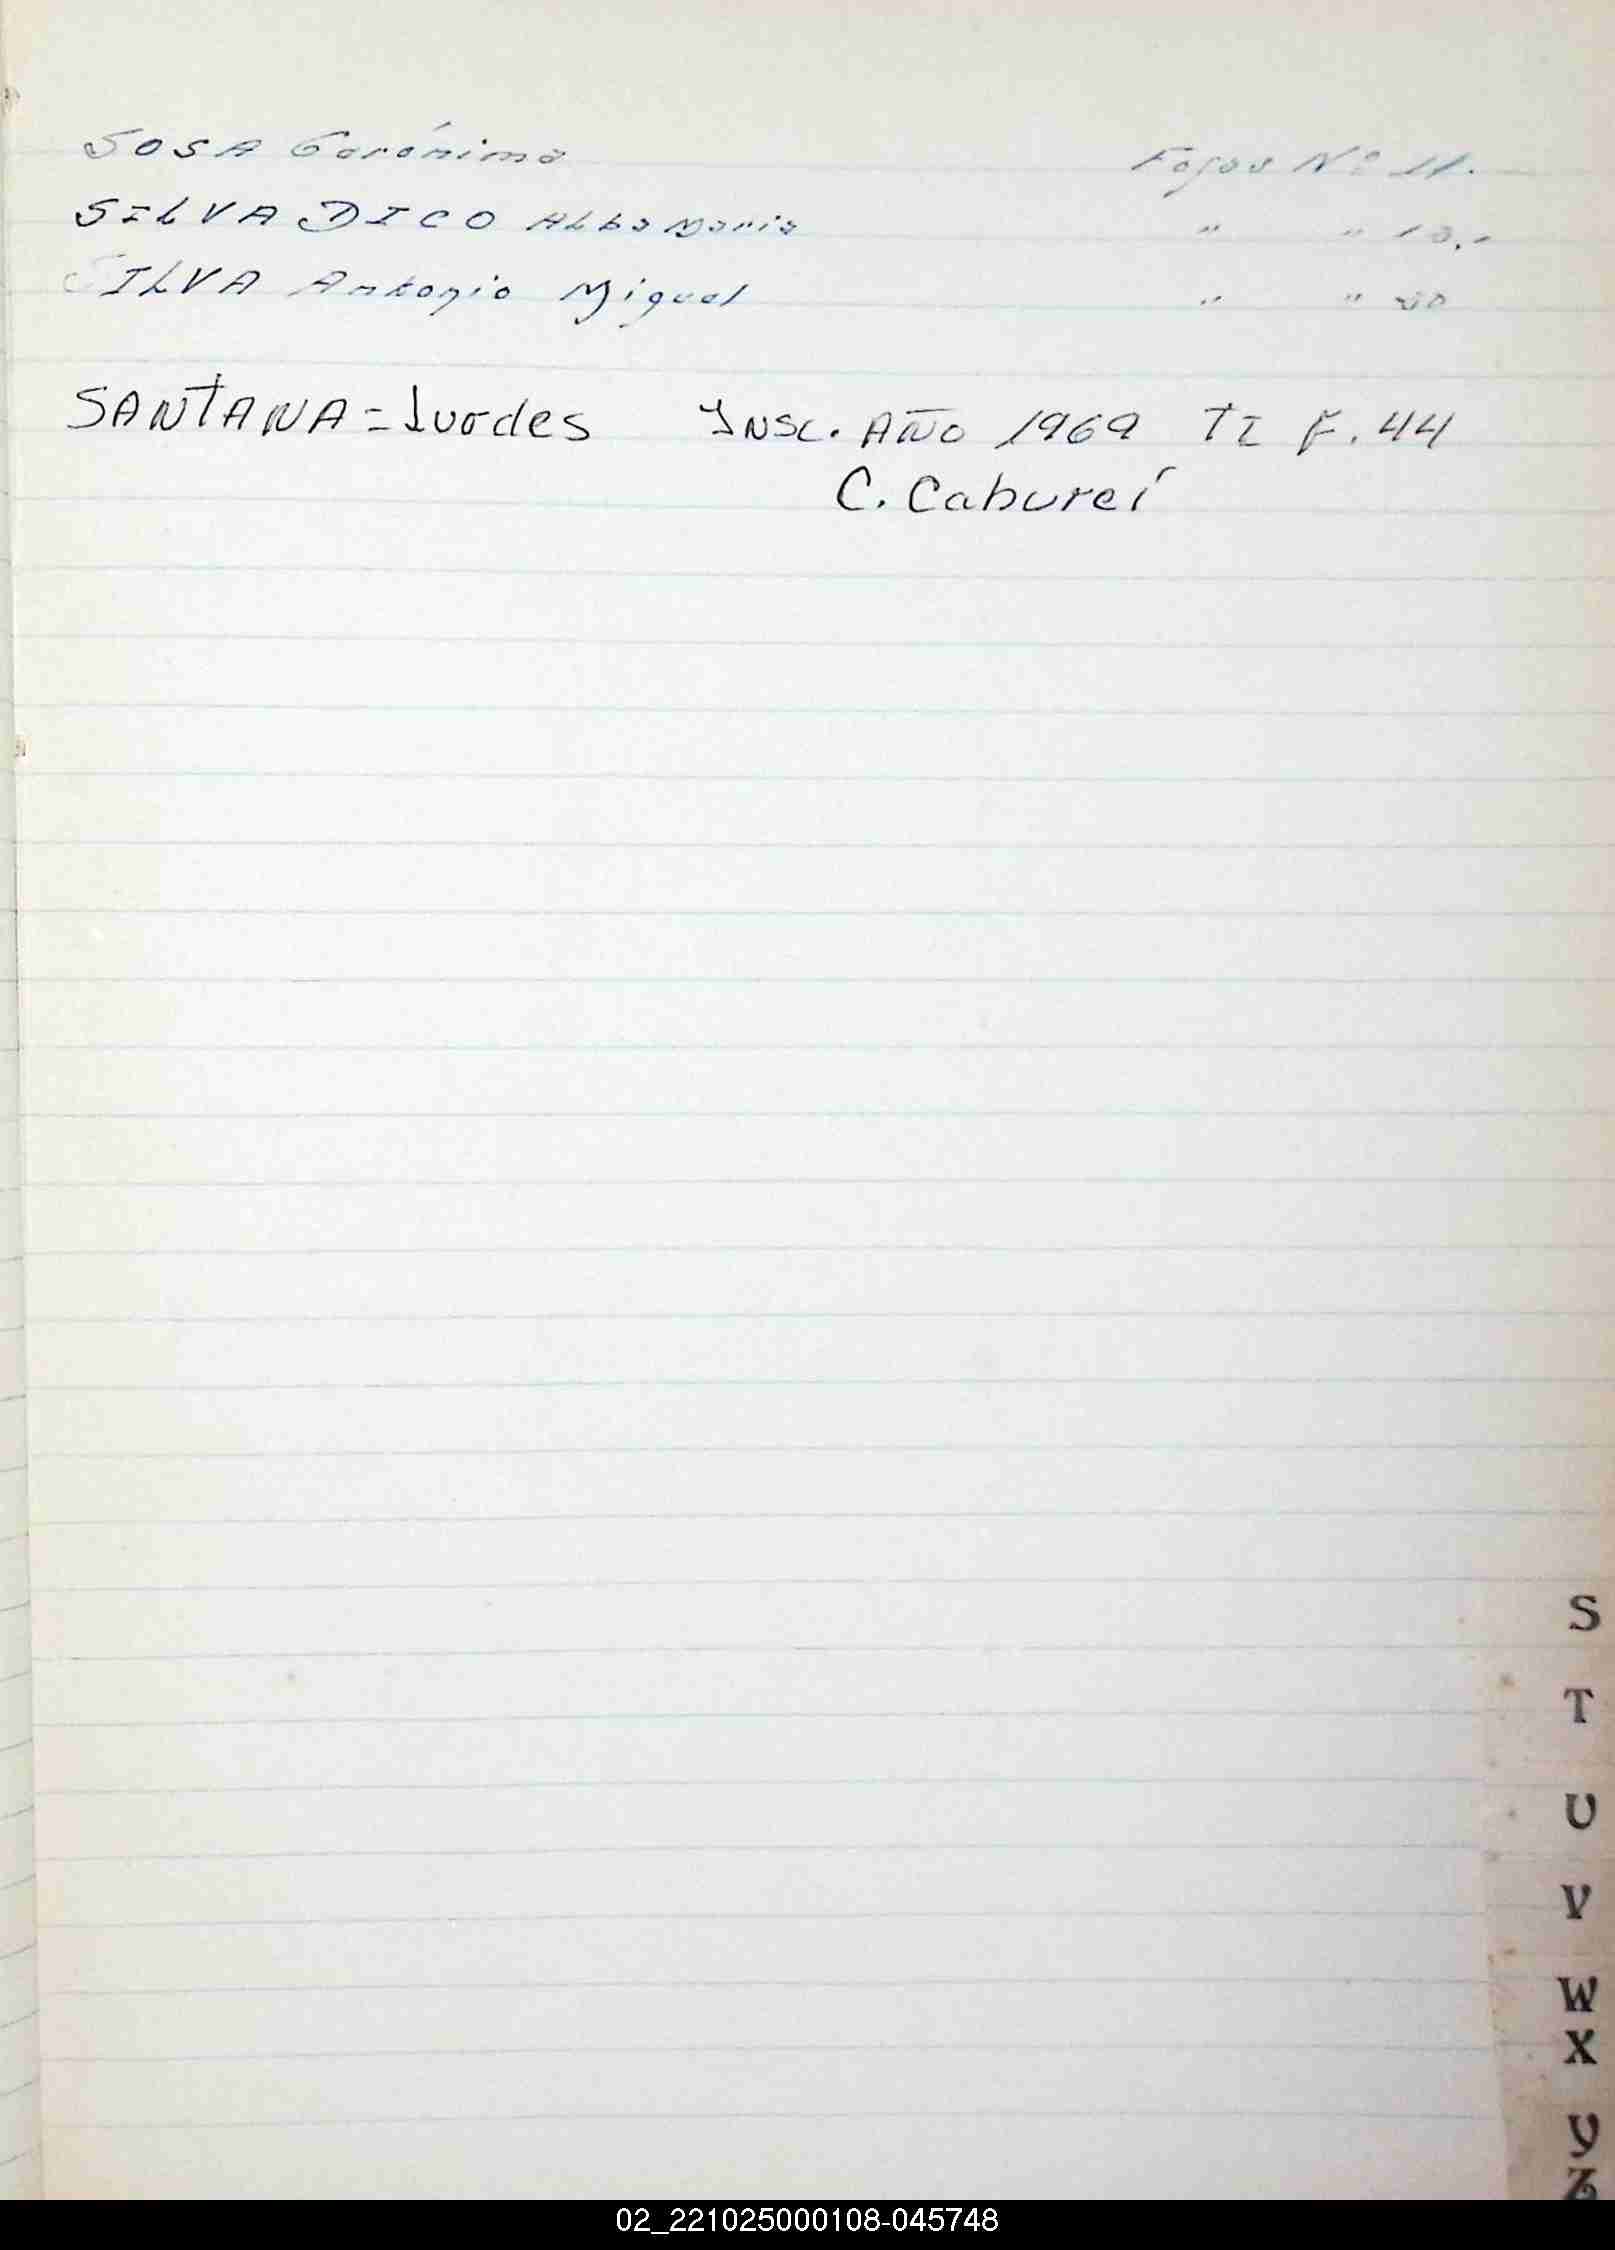 SOSA Gerónimo Fojas Nº 11.
SILVA DICO Alba Maria " " 18.-
SILVA Antonio Miguel " "
SANTANA = Lurdes Insc. AÑO 1969 TI F. 44
C. Cabureí
S
T
U
V
W
X
Y
Z
02_221025000108-045748